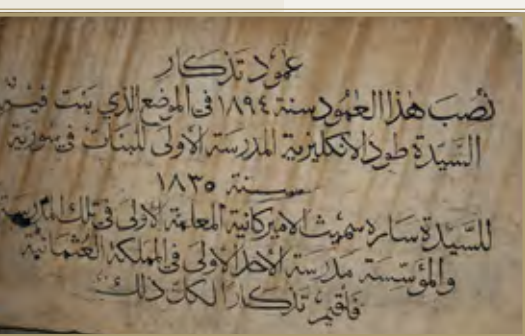 عمود تذكار
نصب هذا العمود سنة ١٨٩٤ في الموضع الذي بنت فيه
السيّدة طود الانكليزية المدرسة الأولى للبنات في سورية
سنة ١٨٣٥
للسيّدة ساره سميث الاميركانية المعلمة الأولى في تلك المدرسة
والمؤسّسة مدرسة الأحد الأولى في المملكة العثمانية
فأقيم تذكارًا لكلّ ذلك